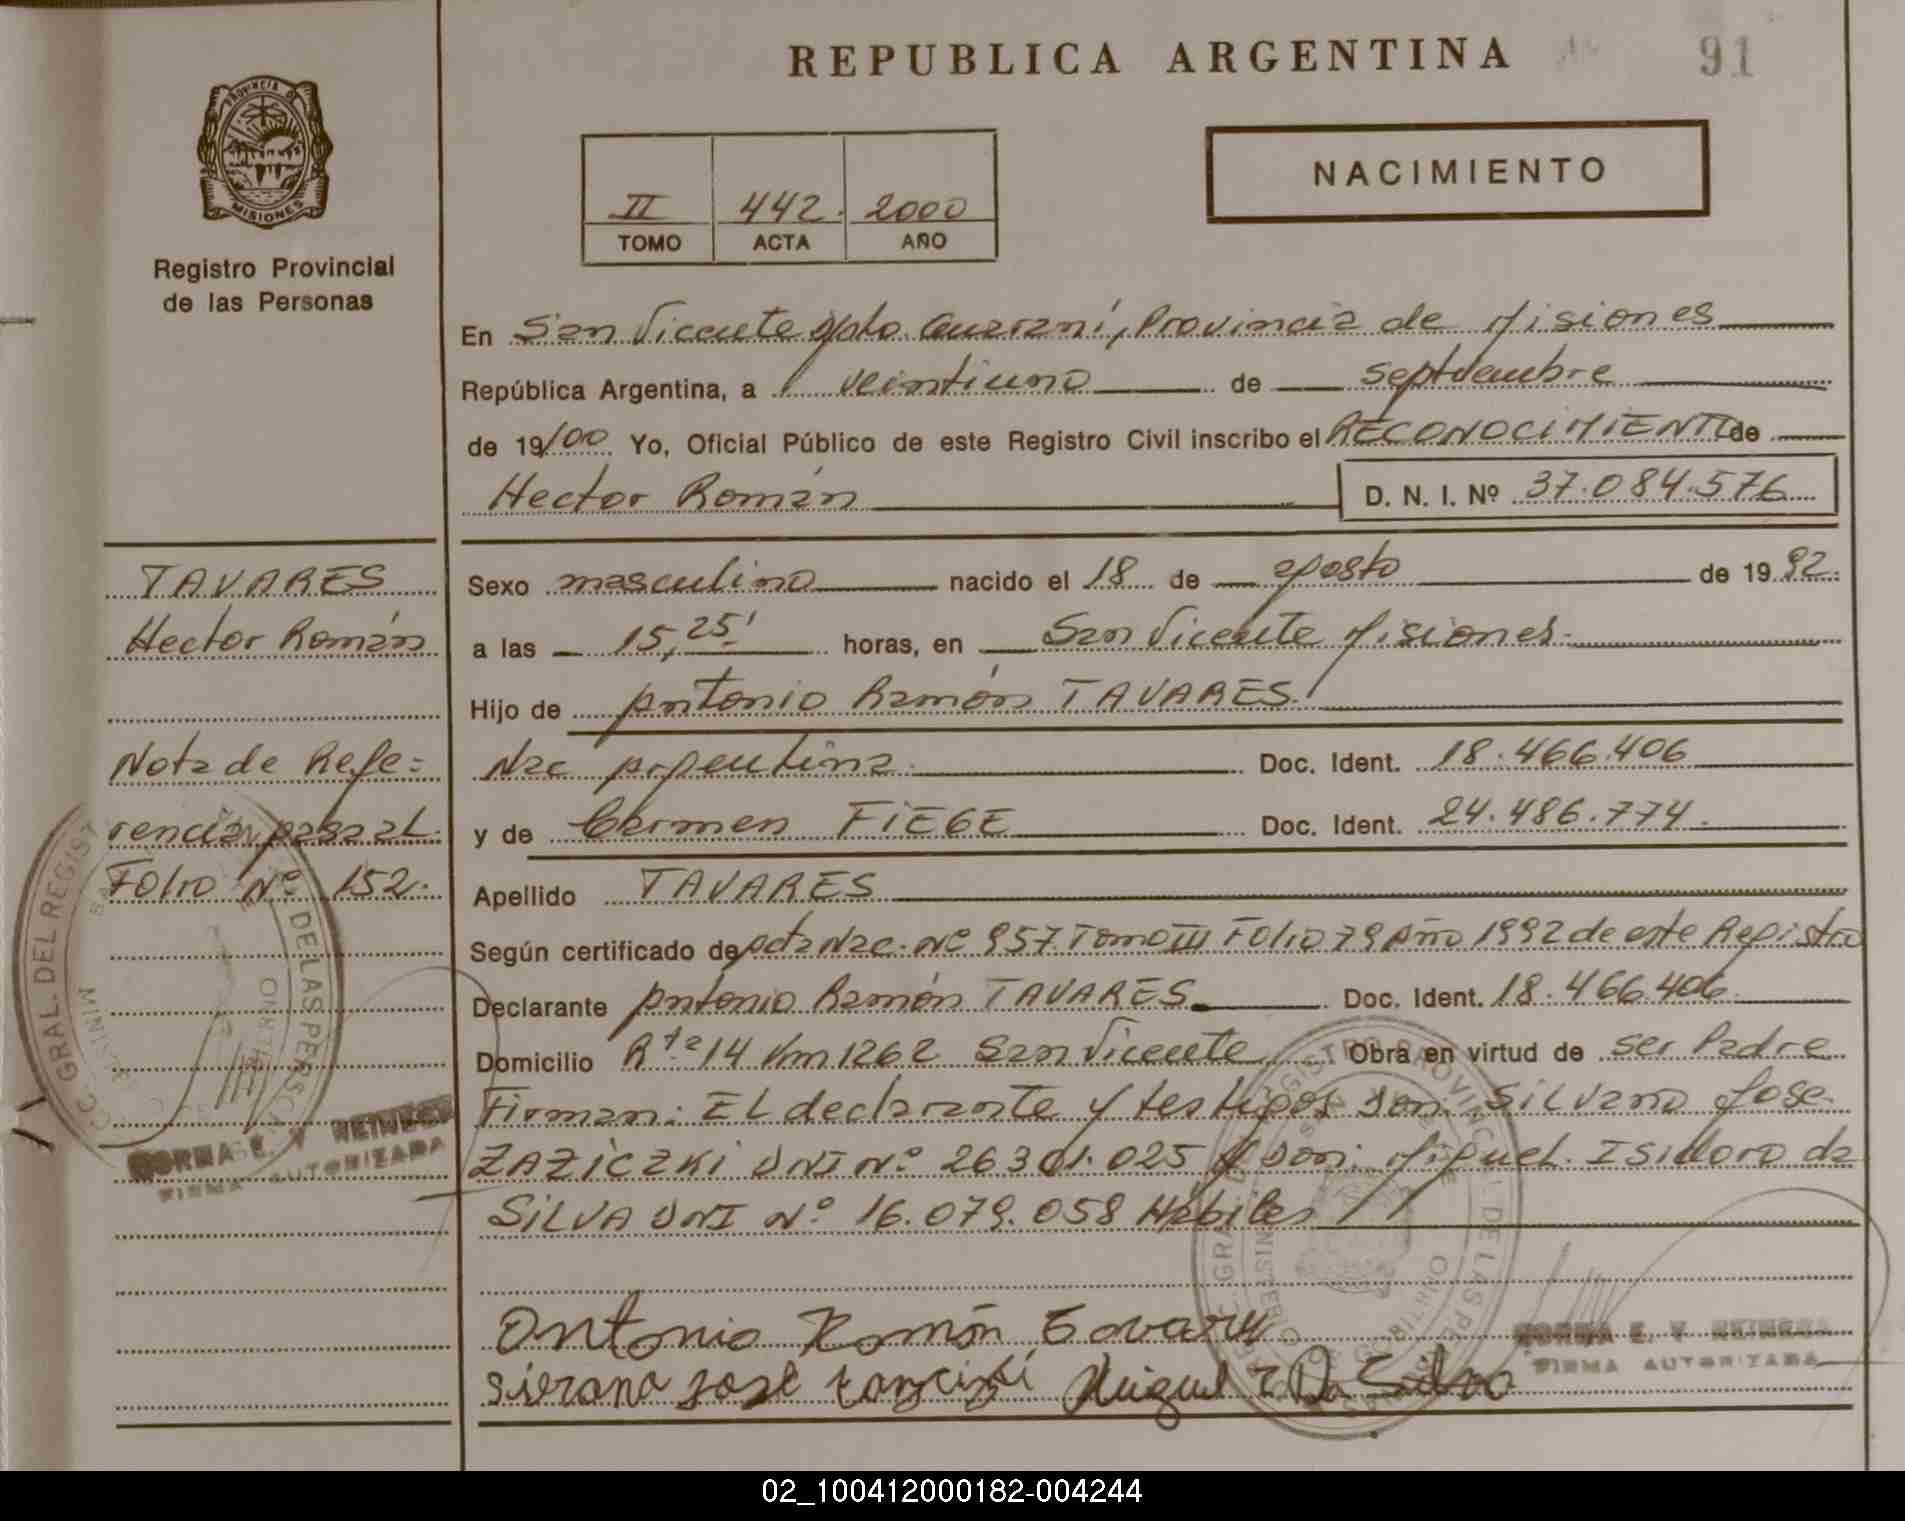 REPUBLICA ARGENTINA
91
PROVINCIA DE
MISIONES
Registro Provincial
de las Personas
NACIMIENTO
II 442. 2000
TOMO ACTA AÑO
En San Vicente Dpto. Guaraní, Provincia de Misiones
República Argentina, a veintiuno de septiembre
de 19/00 Yo, Oficial Público de este Registro Civil inscribo el RECONOCIMIENTO de
Hector Román D. N. I. Nº 37.084.576
TAVARES
Hector Román
Nota de Refe=
rencia pasa al
Folio Nº 152.
Sexo masculino nacido el 18 de agosto de 1992.
a las 15,25' horas, en San Vicente Misiones.
Hijo de Antonio Ramón TAVARES.
Nac Argentina. Doc. Ident. 18.466.406
y de Carmen FIEGE Doc. Ident. 24.486.774.
Apellido TAVARES
Según certificado de Acta Nac. Nº 957 Tomo III Folio 79 Año 1992 de este Registro
Declarante Antonio Ramón TAVARES Doc. Ident. 18.466.406.
Domicilio Rta 14 Km 1262 San Vicente Obra en virtud de ser Padre
Firman: EL declarante y testigos Don: Silvano Jose
ZAZICZKI DNI Nº 26301.025 y Don: Miguel Isidoro da
SILVA DNI Nº 16.079.058 Hábiles
Antonio Ramón
José Miguel I Da Silva
GRAL. DEL REGIST
DE LAS PERSONAS
NORMA E. V. REINECK
FIRMA AUTORIZADA
NORMA E. V. REINECK
FIRMA AUTORIZADA
02_100412000182-004244